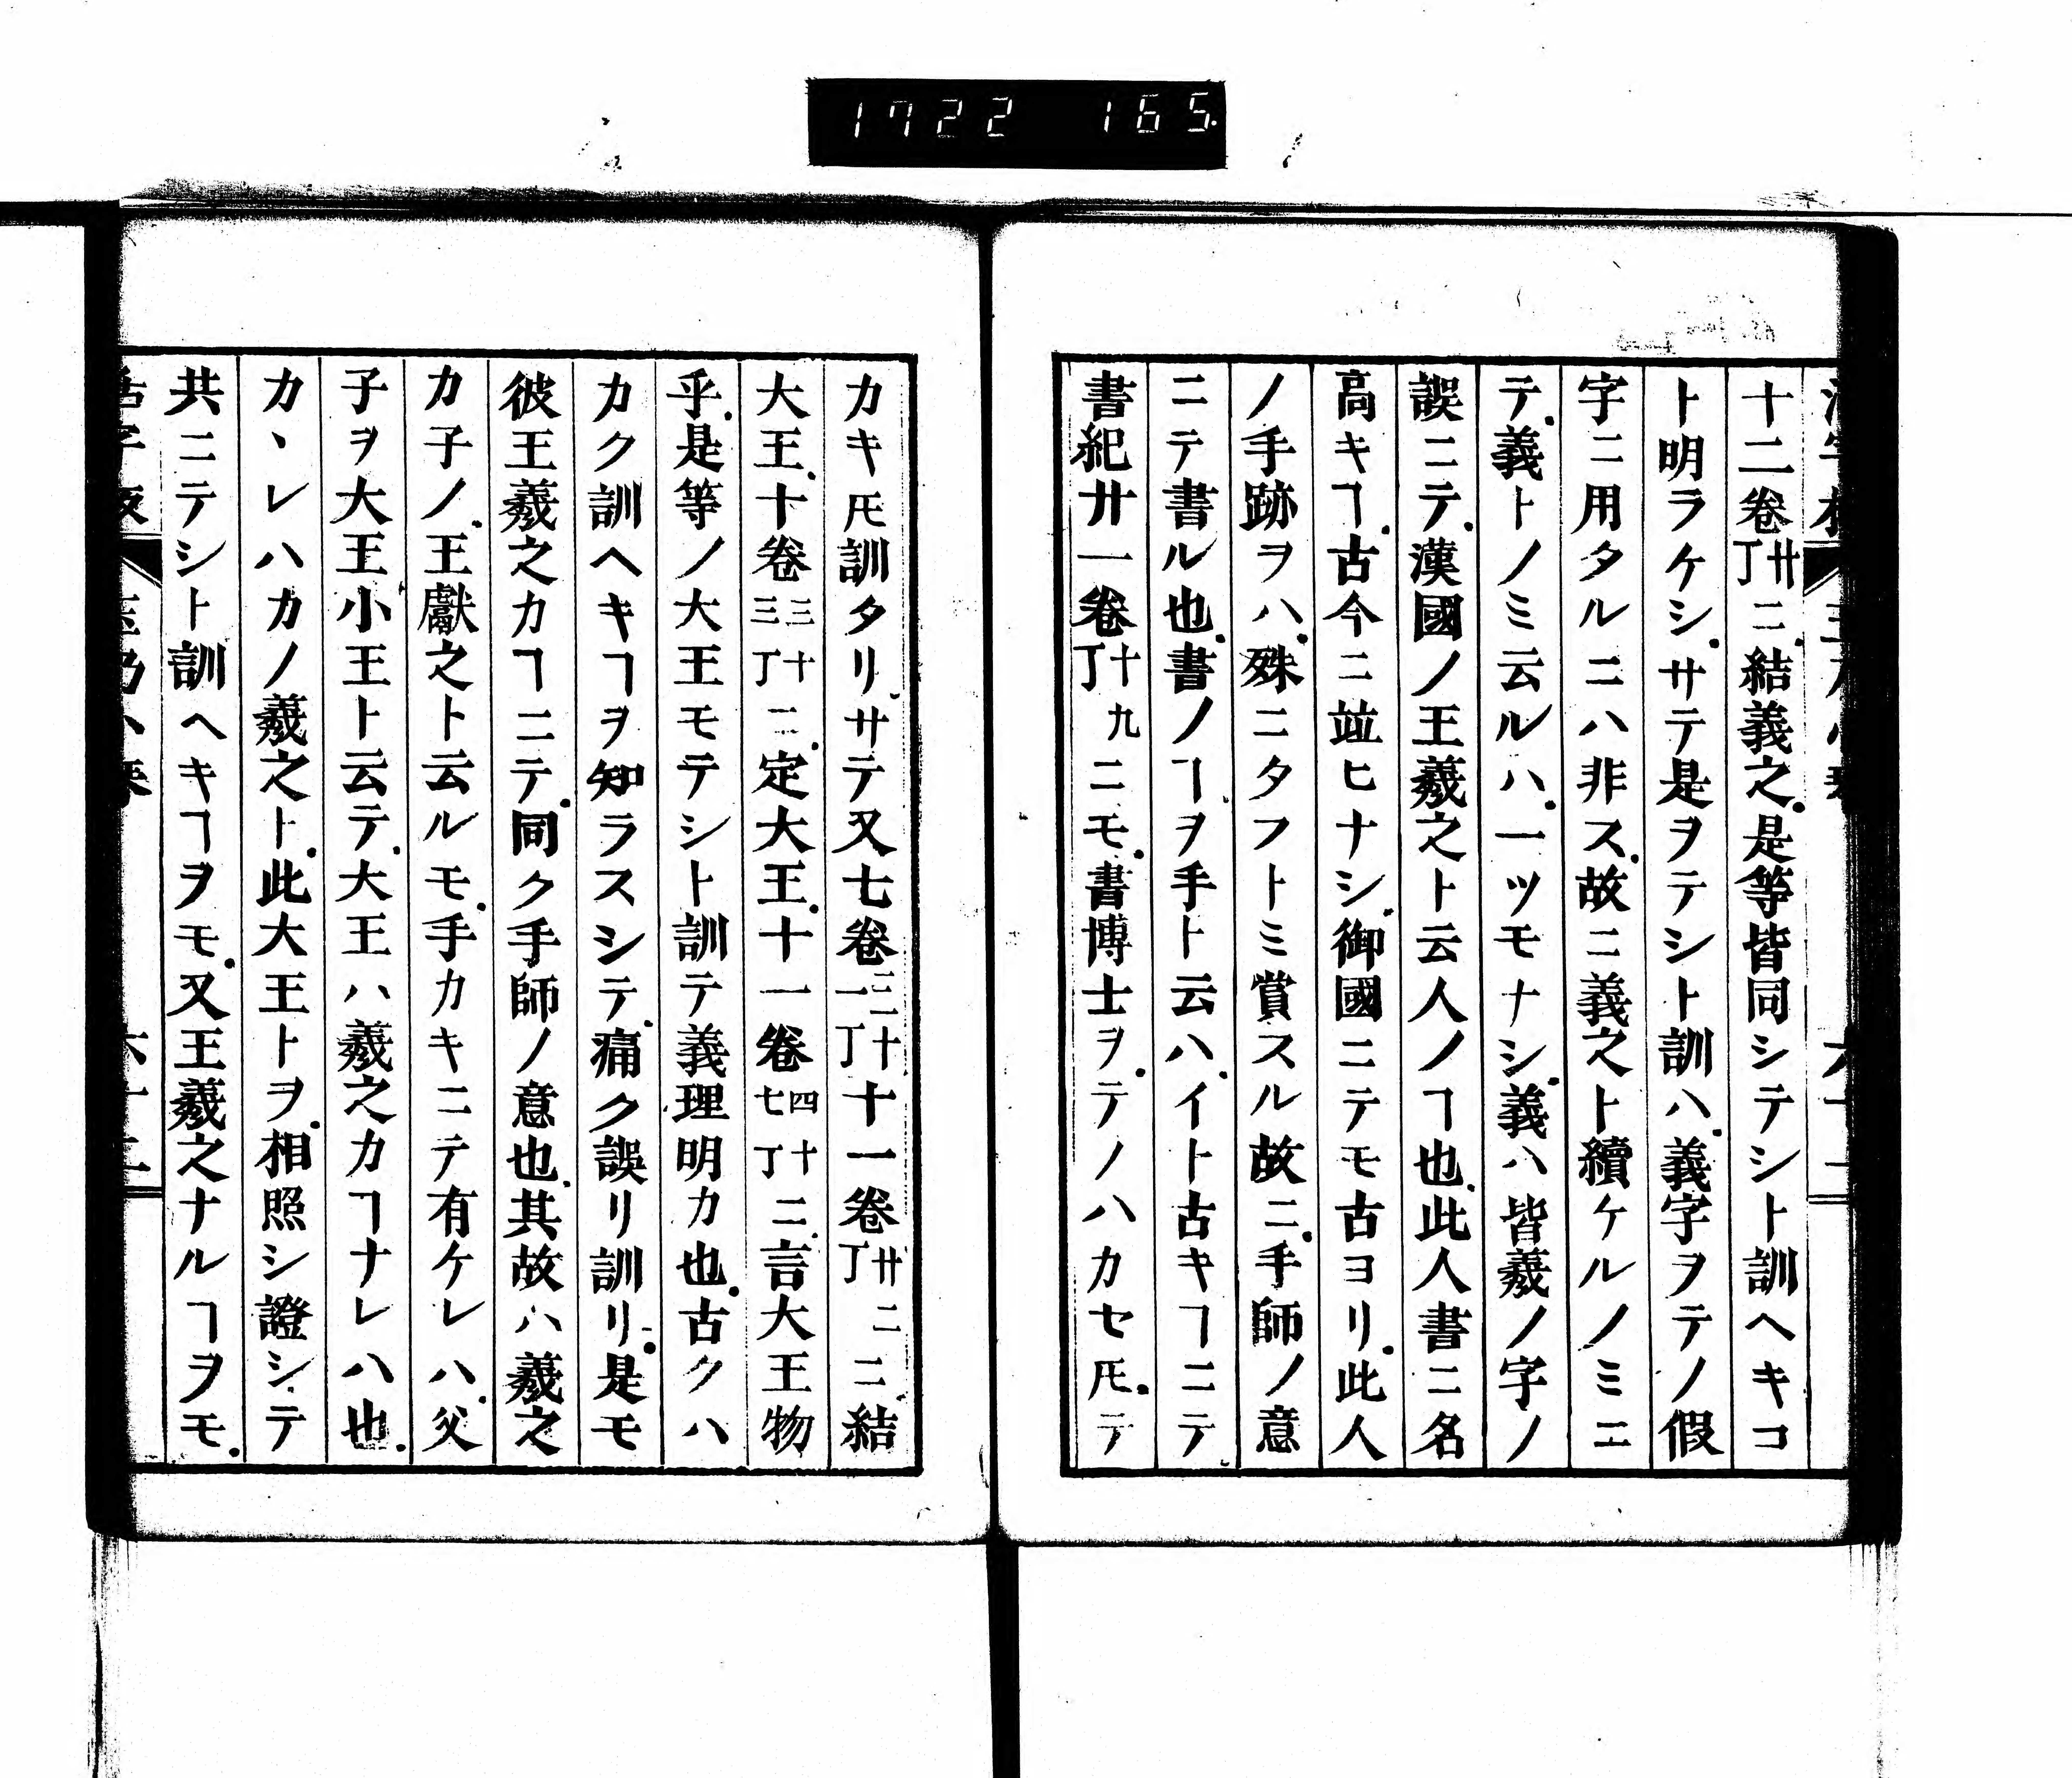 1722 165
十二卷廿丁ニ.結義之.是等皆同シテシト訓ヘキコ
ト明ラケシ.サテ是ヲテシト訓ハ.義字ヲテノ假
字ニ用タルニハ非ス.故ニ義之ト續ケルノミニ
テ.義トノミ云ルハ.一ツモナシ.義ハ皆羲ノ字ノ
誤ニテ.漢國ノ王羲之ト云人ノヿ也.此人書ニ名
高キヿ.古今ニ竝ヒナシ.御國ニテモ古ヨリ.此人
ノ手跡ヲハ.殊ニタフトミ賞スル故ニ.手師ノ意
ニテ書ル也.書ノヿヲ手ト云ハ.イト古キヿニテ
書紀廿一卷十九丁ニモ.書博士ヲ.テノハカセ𪜈.テ
カキ𪜈訓タリ.サテ又七卷三十一丁十一卷廿二丁ニ.結
大王.十卷三十三丁ニ.定大王.十一卷四十七丁ニ.言大王物
乎.是等ノ大王モテシト訓テ義理明カ也.古クハ
カク訓ヘキヿヲ知ラスシテ.痛ク誤リ訓リ.是モ
彼王羲之カヿニテ.同ク手師ノ意也.其故ハ羲之
カ子ノ.王獻之ト云ルモ.手カキニテ有ケレハ.父
子ヲ大王小王ト云テ.大王ハ羲之カヿナレハ也.
カヽレハカノ羲之ト.此大王トヲ.相照シ證シテ
共ニテシト訓ヘキヿヲモ.又王羲之ナルヿヲモ.